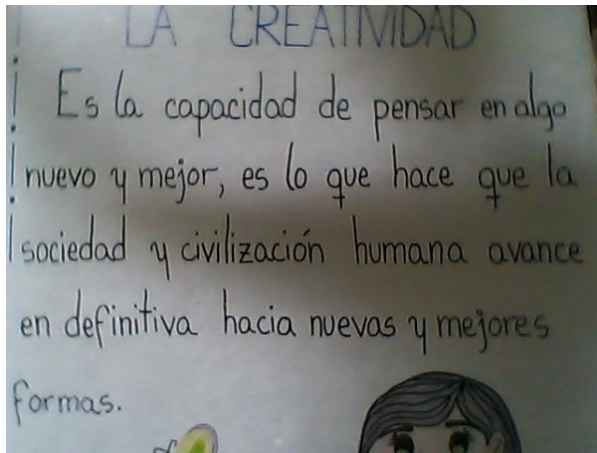 LA CREATIVIDAD
Es la capacidad de pensar en algo
nuevo y mejor, es lo que hace que la
sociedad y civilización humana avance
en definitiva hacia nuevas y mejores
formas.